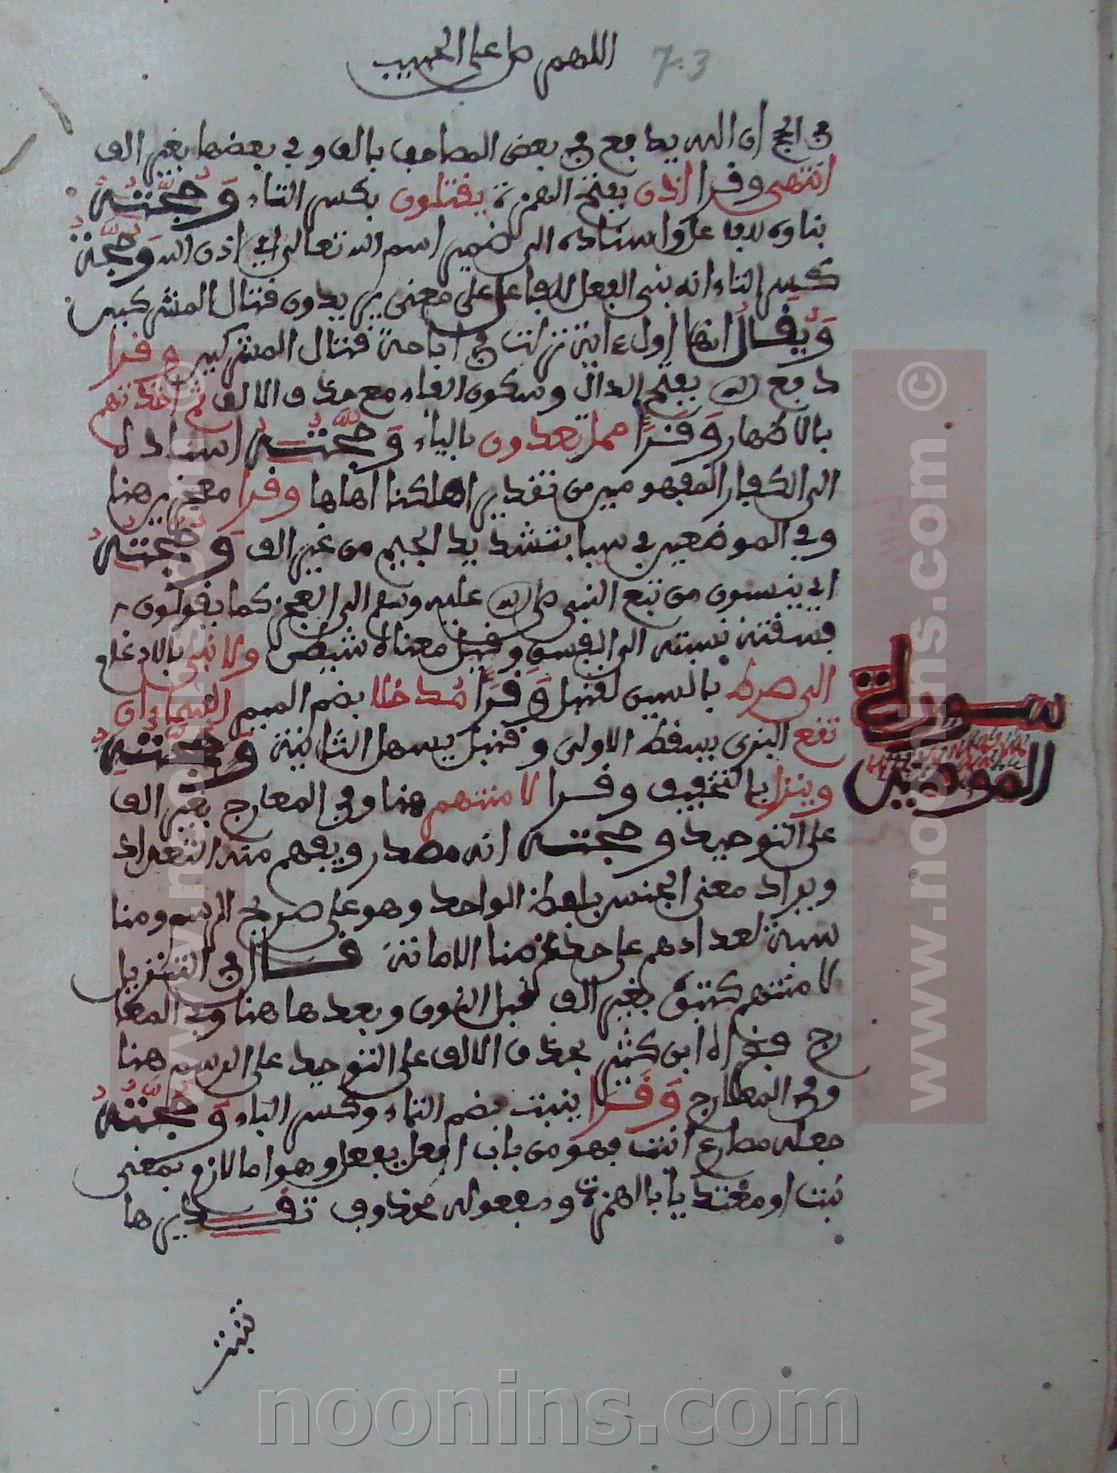 اللهم صل على الحبيب
7.3
في الحج ان الله يدافع في بعض المصاحف بالف وفي بعضها بغير الف
انتهى وقرا اذن بفتح الهمزة يقتلون بكسر التاء وحجته
بناوه للفاعل واسناده الى ضمير اسم الله تعالى اي اذن الله وحجة
كسر التاء انه بنى الفعل للفاعل على معنى يريدون قتال المشركين
ويقال انها اول ءاية نزلت في اباحة قتال المشركين وقرا
دفع الله بفتح الدال وسكون الفاء مع حذف الالف ثم اخذتهم
بالاظهار وقرا مما تعدون بالياء وحجته اسناده
الى الكفار المفهومين من تقدير اهلكنا اهلها وقرا معجزين هنا
وفي الموضعين في سبا بتشديد الجيم من غير الف وحجته
اي ينسبون من تبع النبي صلى الله عليه وسلم الى العجز كما يقولون
فسقته نسبته الى الفسق وقيل معناه مثبطين ولا نبي بالادغام
الى صراط بالسين لقنبل وقرا مدخلا بضم الميم السماء ان
تقع البزي يسقط الاولى وقنبل يسهل الثانية وحجته
وينزل بالتخفيف وقرا لامنتهم هنا وفي المعارج بغير الف
على التوحيد وحجته انه مصدر ويفهم منه التعداد
ويراد معنى الجنس بلفظ الواحد وهو على صريح الرسم ومنا
سبة لعدادهم على حد عرضنا الامانة قال في التنزيل
لامنتهم كتبوه بغير الف قبل النون وبعدها هنا وفي المعا
رج فقراه ابن كثير بحذف الالف على التوحيد على الرسم هنا
وفي المعارج وقرا ينبت بضم التاء وكسر الباء وحجته
جعله مضارع انبت فهو من باب افعل يفعل وهو اما لازم بمعنى
نبت او متعديا بالهمزة ومفعوله محذوف تقديرها
تنبت
سورة
المومنين
www.noonins.com ©
www.noonins.com ©
noonins.com